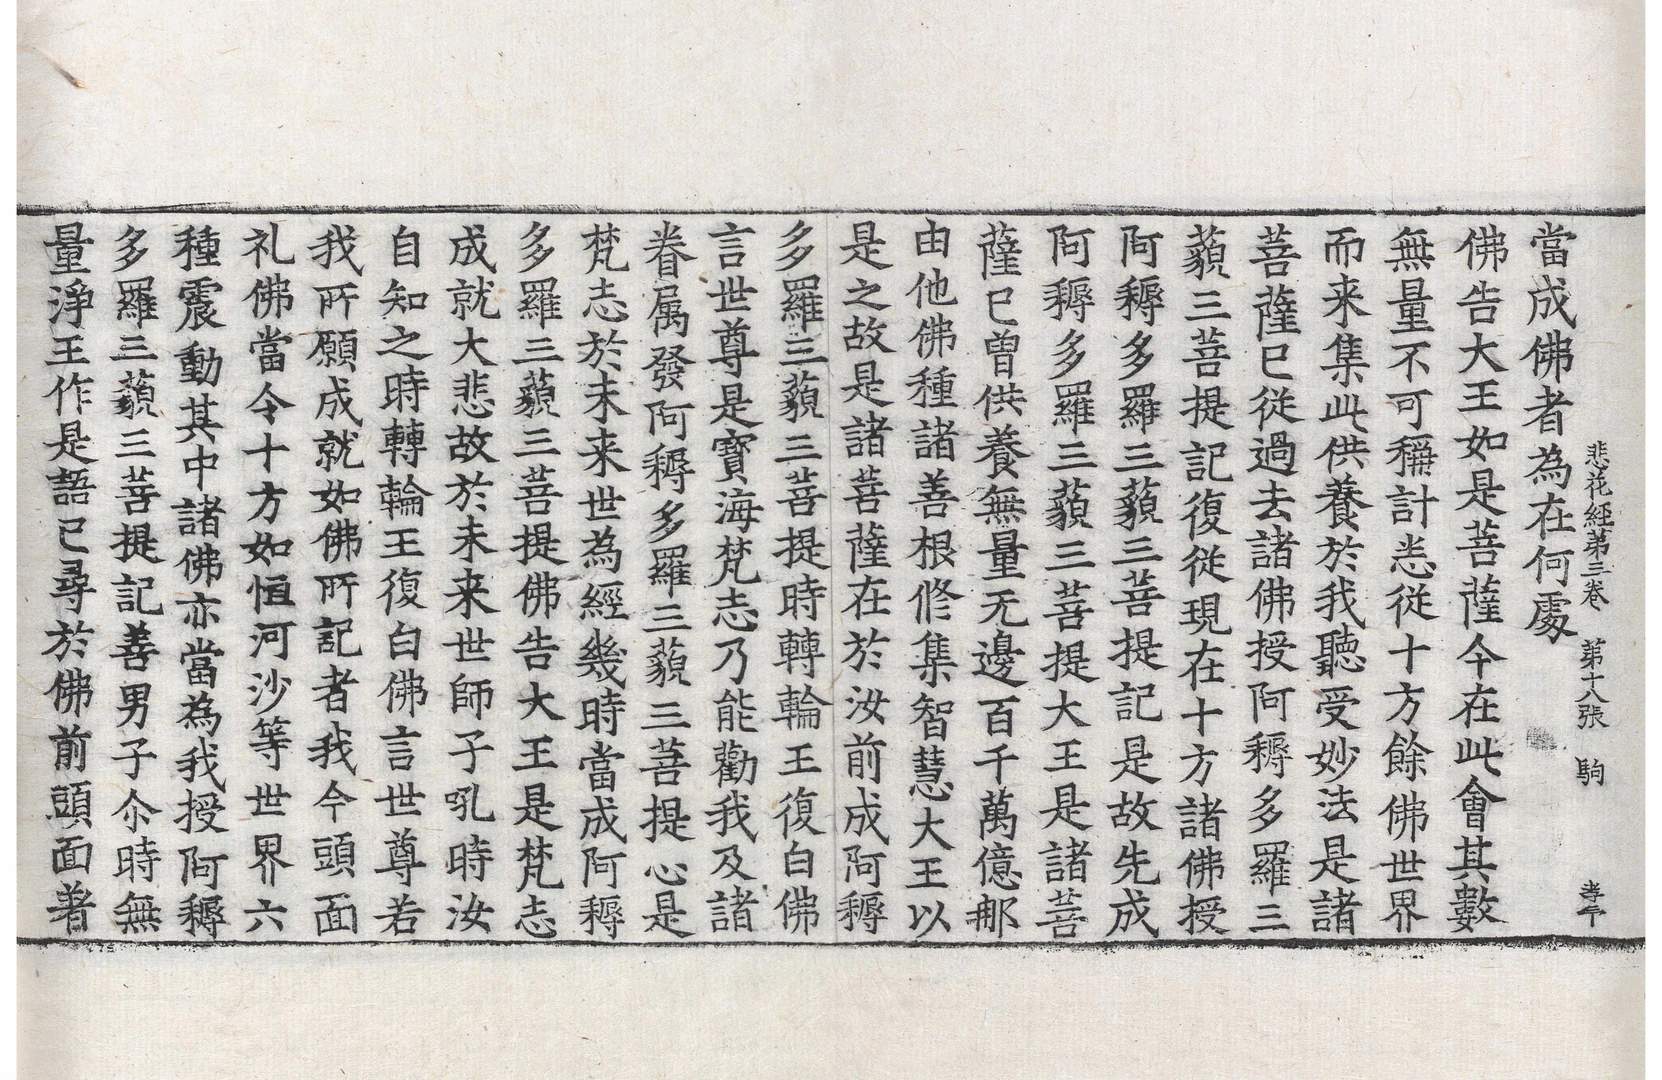 悲花經第三卷　第十八張　駒　孝卒
當成佛者為在何處
佛告大王如是菩薩今在此會其數
無量不可稱計悉從十方餘佛世界
而来集此供養於我聽受妙法是諸
菩薩已從過去諸佛授阿耨多羅三
藐三菩提記復從現在十方諸佛授
阿耨多羅三藐三菩提記是故先成
阿耨多羅三藐三菩提大王是諸菩
薩已曾供養無量无邊百千萬億那
由他佛種諸善根修集智慧大王以
是之故是諸菩薩在於汝前成阿耨
多羅三藐三菩提時轉輪王復白佛
言世尊是寶海梵志乃能勸我及諸
眷属發阿耨多羅三藐三菩提心是
梵志於未来世為經幾時當成阿耨
多羅三藐三菩提佛告大王是梵志
成就大悲故於未来世師子吼時汝
自知之時轉輪王復白佛言世尊若
我所願成就如佛所記者我今頭面
礼佛當令十方如恒河沙等世界六
種震動其中諸佛亦當為我授阿耨
多羅三藐三菩提記善男子尒時無
量淨王作是語已尋於佛前頭面著